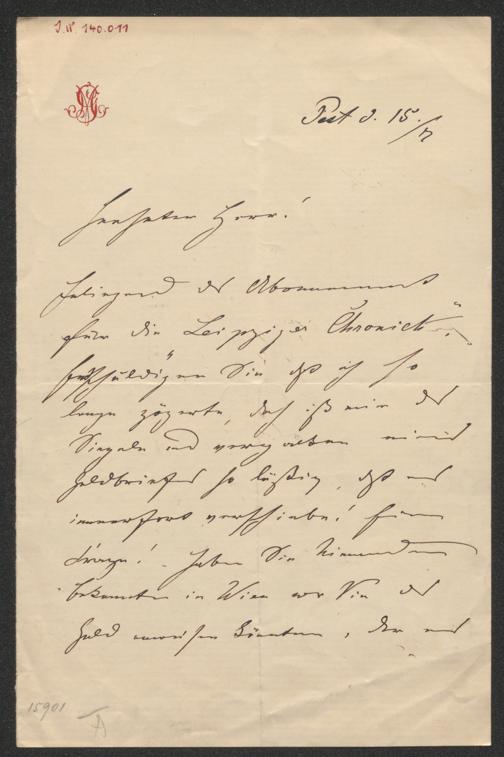 I.N. 140.011
Pest d. 15/7
Geehrter Herr!
Inliegend das Abonnement
für die Leipziger Chronick".
Entschuldigen Sie daß ich so
lange zögerte, doch ist mir das
Siegeln und
Geldbriefes so lästig, daß
immerfort verschiebe!
Frage! Haben Sie Niemanden
Bekannten in Wien wo Sie das
Geld anweisen könnten, der
15901
A